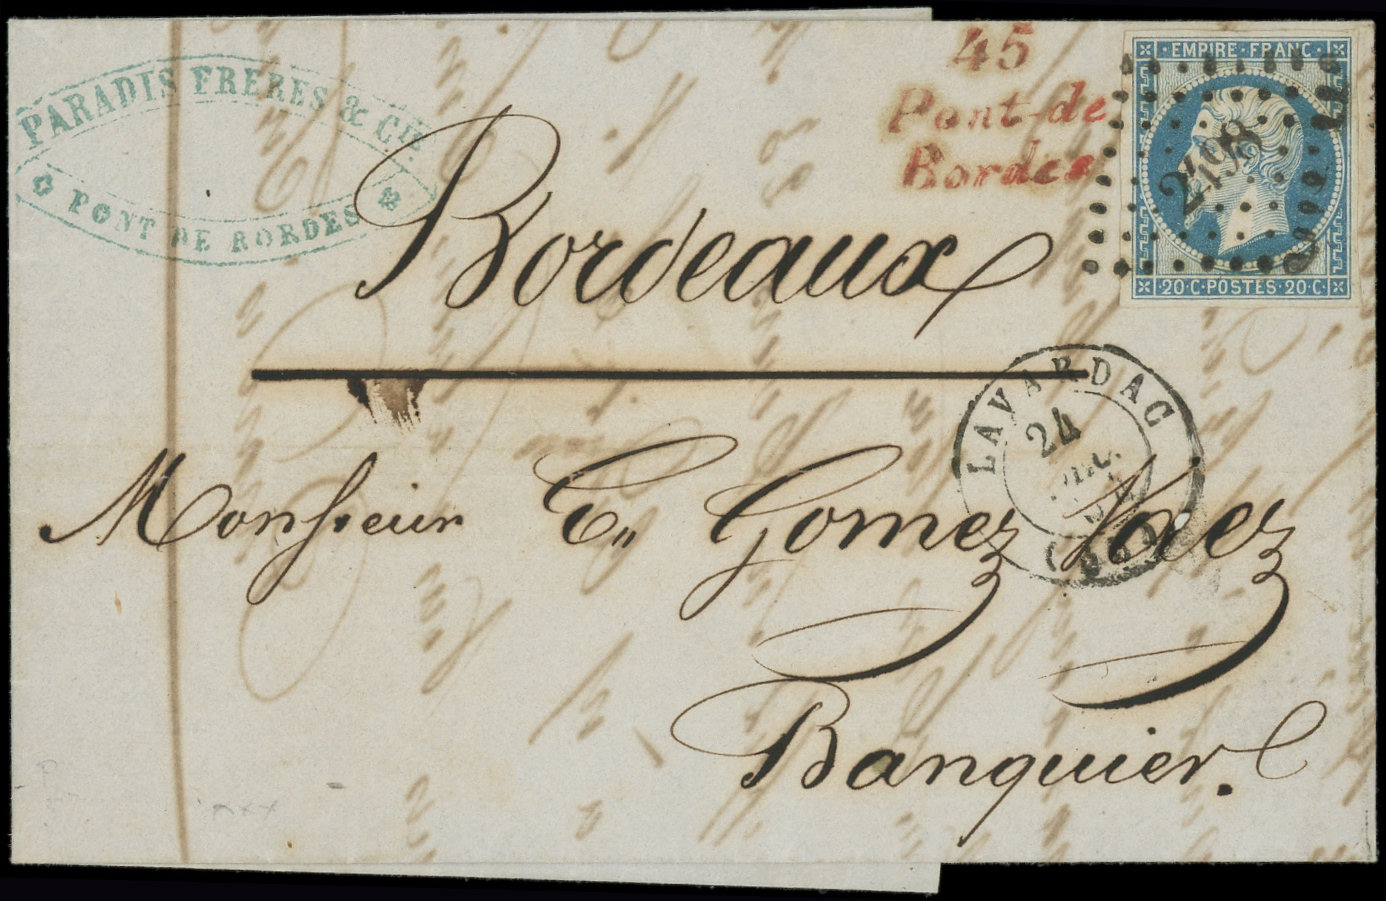 PARADIS FRERES & Cie.
PONT DE BORDES
45
Pont-de
Bordes
EMPIRE · FRANC ·
2498
20 C · POSTES · 20 C ·
Bordeaux
LAVARDAC
24
DEC.
54
Monsieur E„ Gomez Vaez
Banquier.